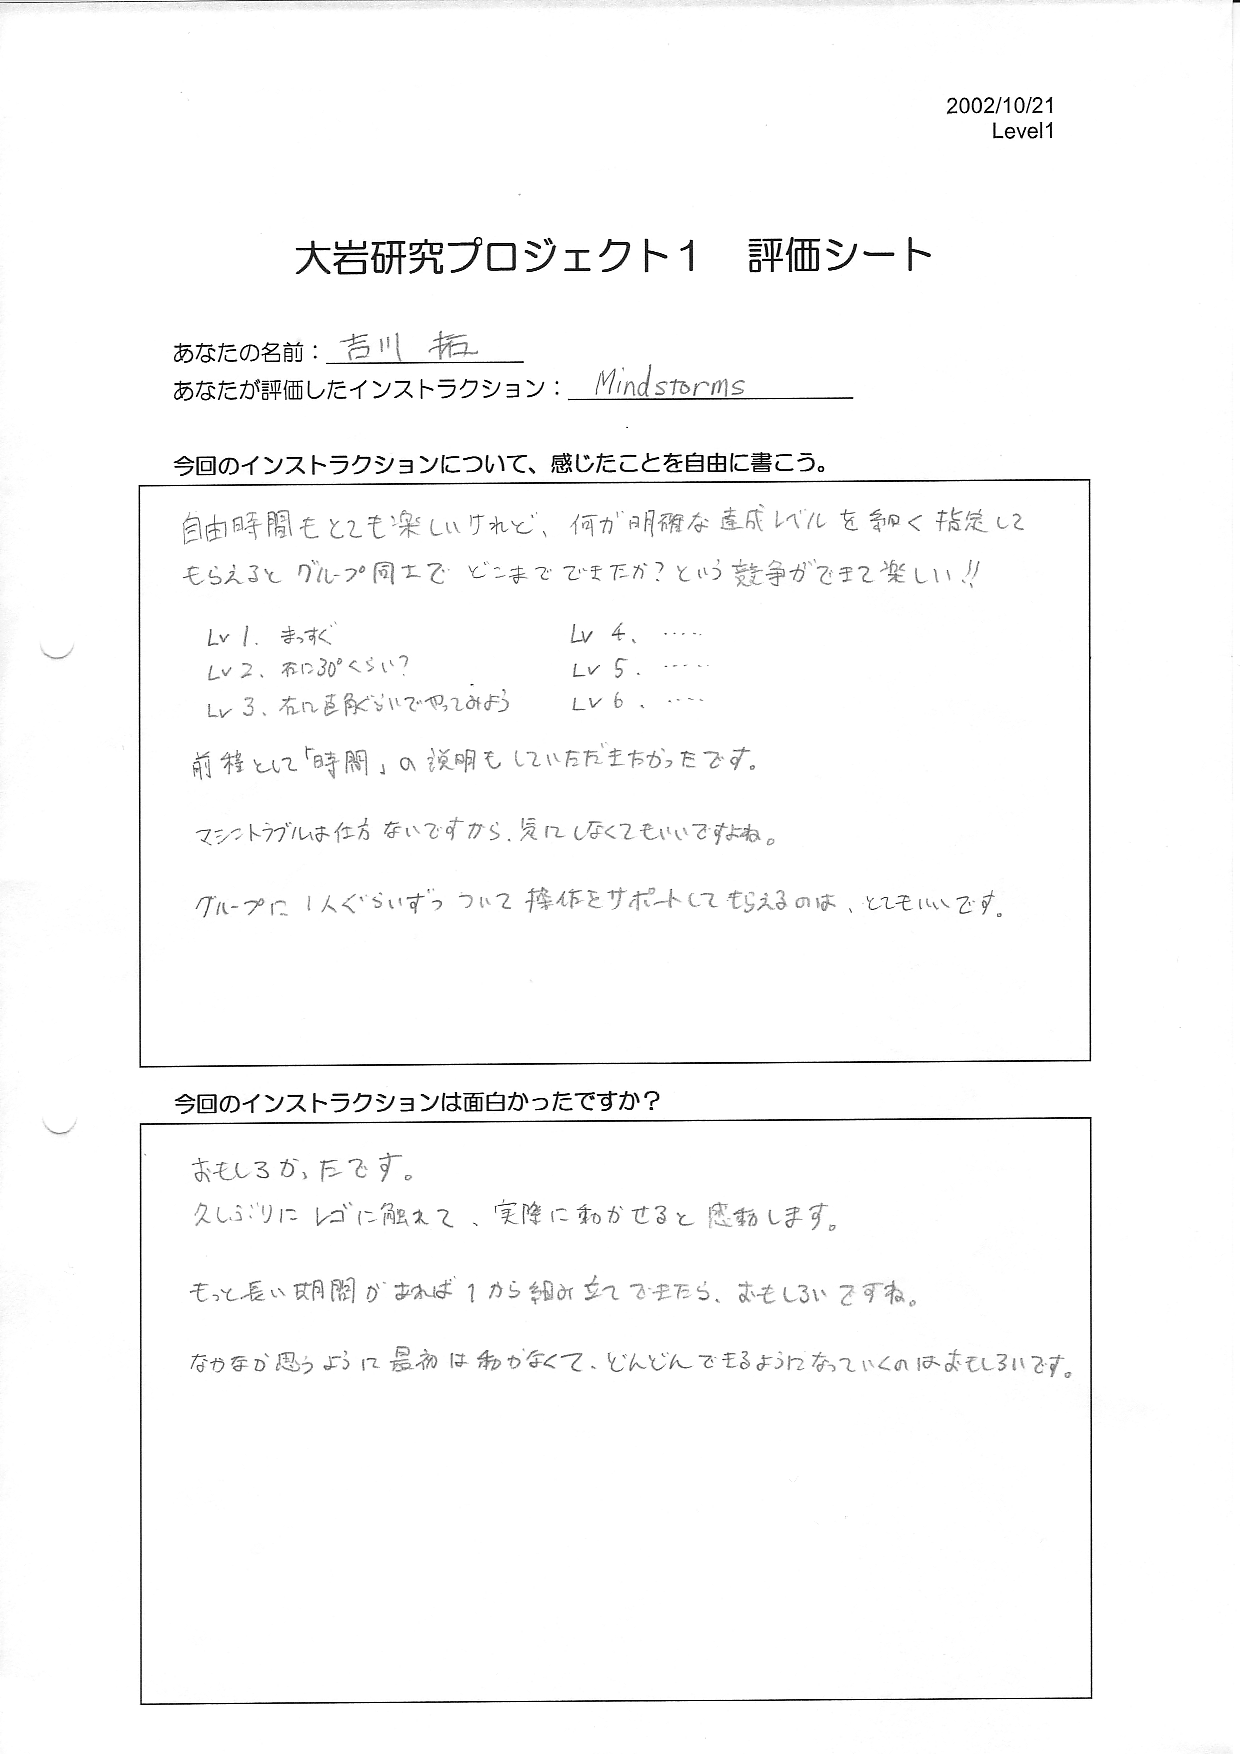 2002/10/21
Level1
大岩研究プロジェクト１　評価シート
あなたの名前：吉川 拓
あなたが評価したインストラクション：Mindstorms
今回のインストラクションについて、感じたことを自由に書こう。
自由時間もとても楽しいけれど、何か明確な達成レベルを細く指定して
もらえると グループ同士で どこまで できたか？という競争ができて楽しい!!
Lv 1. まっすぐ
Lv 2、右に30°くらい？
Lv 3、右に直角ぐらいでやってみよう
Lv 4、……
Lv 5. ……
Lv 6、……
前程として「時間」の説明もしていただきたかったです。
マシントラブルは仕方ないですから、気にしなくてもいいですよね。
グループに 1人ぐらいずつ ついて 操作をサポートしてもらえるのは、とてもいいです。
今回のインストラクションは面白かったですか？
おもしろかったです。
久しぶりに レゴに触れて、実際に動かせると 感動します。
もっと長い期間があれば 1から組み立てできたら、おもしろいですね。
なかなか思うように最初は動かなくて、どんどんできるようになっていくのはおもしろいです。